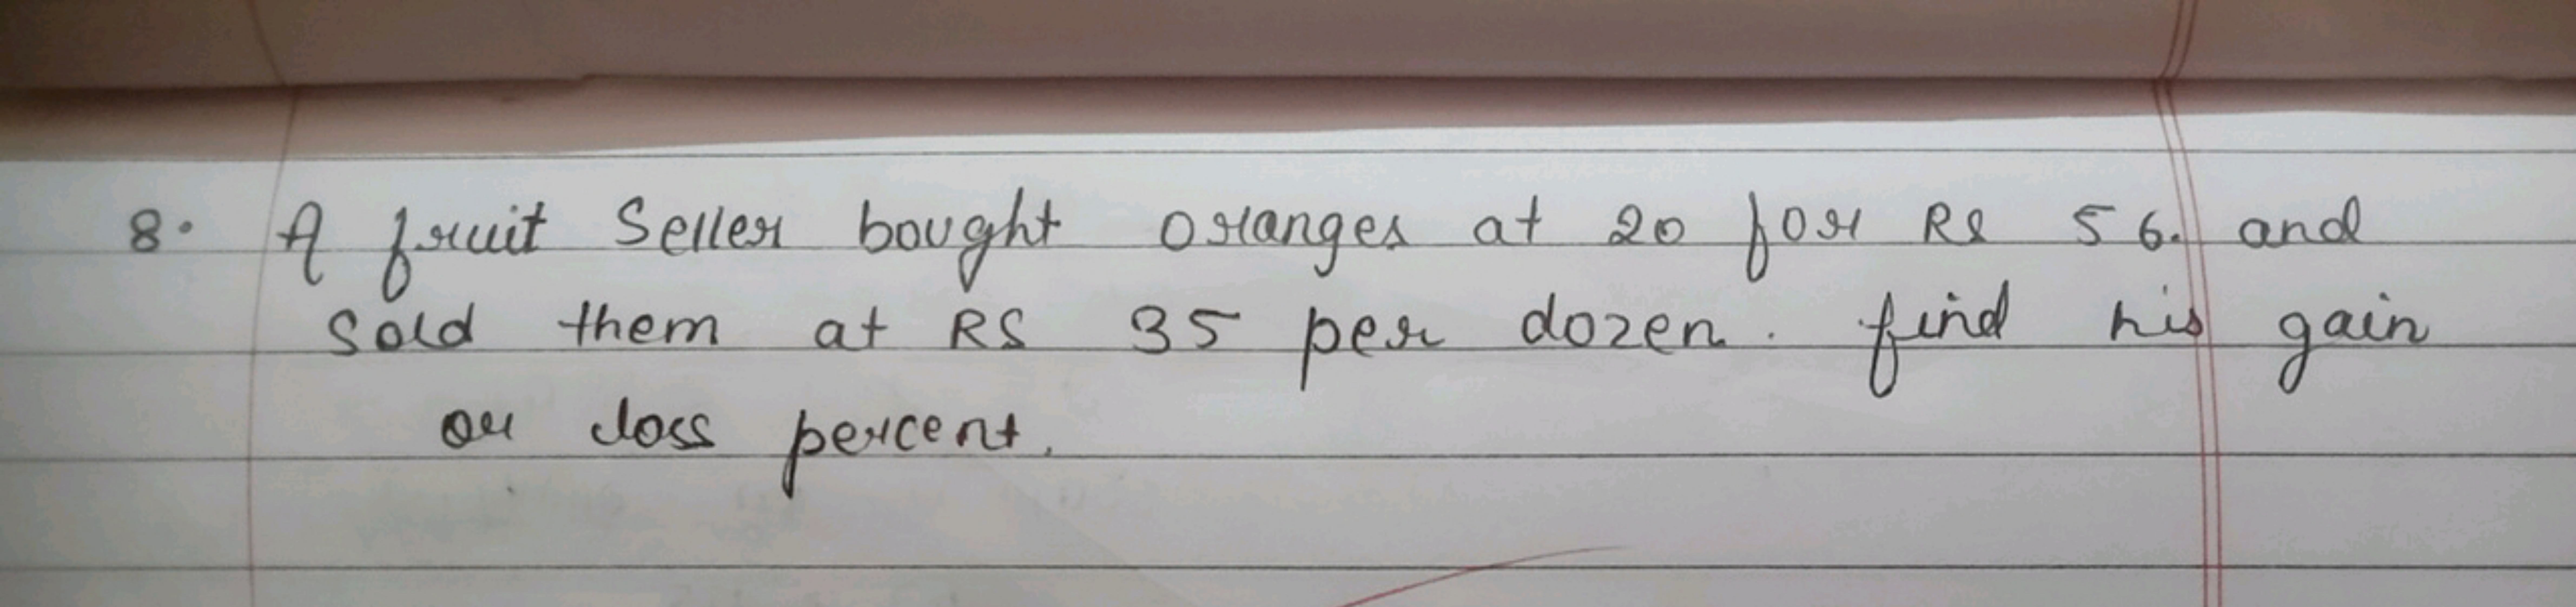 8. A fruit Seller bought oranges at 20 for Rs 56. and
Sold them at RS 35 per dozen. find his gain
or loss percent.